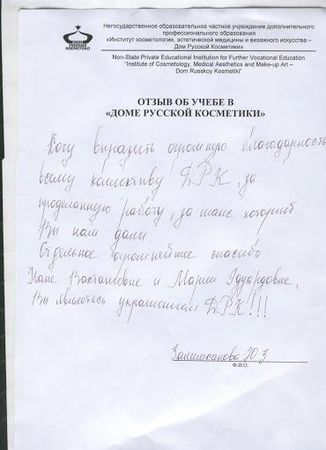 Негосударственное образовательное частное учреждение дополнительного
профессионального образования
«Институт косметологии, эстетической медицины и визажного искусства –
Дом Русской Косметики»
Non-State Private Educational Institution for Further Vocational Education
"Institute of Cosmetology, Medical Aesthetics and Make-up Art –
Dom Russkoy Kosmetiki"
ОТЗЫВ ОБ УЧЕБЕ В
«ДОМЕ РУССКОЙ КОСМЕТИКИ»
Хочу выразить огромную благодарность
всему коллективу ДРК, за
проделанную работу, за шанс который
Вы нам дали.
Отдельное огромнейшее спасибо
и Марии Эдуардовне,
Вы являетесь украшением ДРК!!!
Ю.З
Ф.И.О.